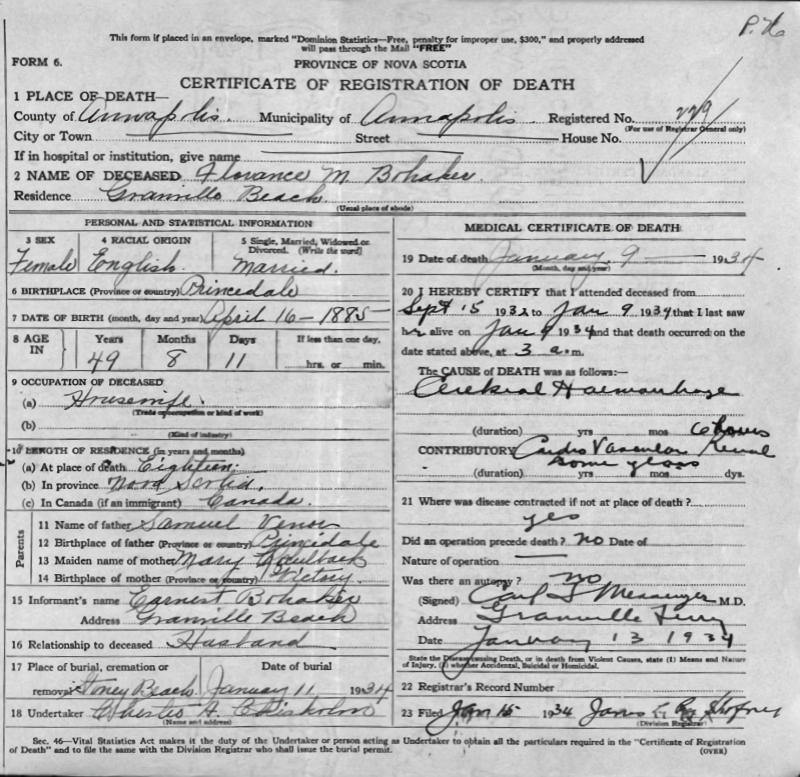 P. 76
This form if placed in an envelope, marked "Dominion Statistics—Free, penalty for improper use, $300," and properly addressed
will pass through the Mail "FREE"
FORM 6.
PROVINCE OF NOVA SCOTIA
CERTIFICATE OF REGISTRATION OF DEATH
1 PLACE OF DEATH—
County of Annapolis. Municipality of Annapolis. Registered No. 229
(For use of Registrar General only)
City or Town Street House No.
If in hospital or institution, give name
2 NAME OF DECEASED Florance M Bohaker.
Residence Granville Beach.
(Usual place of abode)
PERSONAL AND STATISTICAL INFORMATION
3 SEX 4 RACIAL ORIGIN 5 Single, Married, Widowed or
Divorced. (Write the word)
Female English. Married.
6 BIRTHPLACE (Province or country) Princedale
7 DATE OF BIRTH (month, day and year) April 16 – 1885
8 AGE IN Years Months Days If less than one day,
49 8 11 hrs. or min.
9 OCCUPATION OF DECEASED
(a) Housewife.
(Trade or occupation or kind of work)
(b)
(Kind of industry)
10 LENGTH OF RESIDENCE (in years and months)
(a) At place of death Eighteen.
(b) In province Nova Scotia.
(c) In Canada (if an immigrant) Canada.
Parents
11 Name of father Samuel
12 Birthplace of father (Province or country) Princedale
13 Maiden name of mother Mary
14 Birthplace of mother (Province or country) Victory.
15 Informant's name Earnest Bohaker
Address Granville Beach
16 Relationship to deceased Husband
17 Place of burial, cremation or Date of burial
removal Stoney Beach. January 11 1934
18 Undertaker A. Chisholm
(Name and address)
MEDICAL CERTIFICATE OF DEATH
19 Date of death January 9 1934
(Month, day and year)
20 I HEREBY CERTIFY that I attended deceased from
Sept 15 1932 to Jan 9 1934 that I last saw
her alive on Jan 9 1934 and that death occurred on the
date stated above, at 3 a.m.
The CAUSE of DEATH was as follows:—
Cerebral Haemorrhage
(duration) yrs mos 6 hours
CONTRIBUTORY Cardio Vascular Renal
some years
(duration) yrs mos dys.
21 Where was disease contracted if not at place of death?
yes
Did an operation precede death? no Date of
Nature of operation —
Was there an autopsy? no
(Signed) Carl Messenger M.D.
Address Granville Ferry
Date January 13 1934
State the Disease causing Death, or in death from Violent Causes, state (1) Means and Nature
of Injury, (2) whether Accidental, Suicidal or Homicidal.
22 Registrar's Record Number
23 Filed Jan 15 1934
(Division Registrar)
Sec. 46—Vital Statistics Act makes it the duty of the Undertaker or person acting as Undertaker to obtain all the particulars required in the "Certificate of Registration
of Death" and to file the same with the Division Registrar who shall issue the burial permit. (OVER)